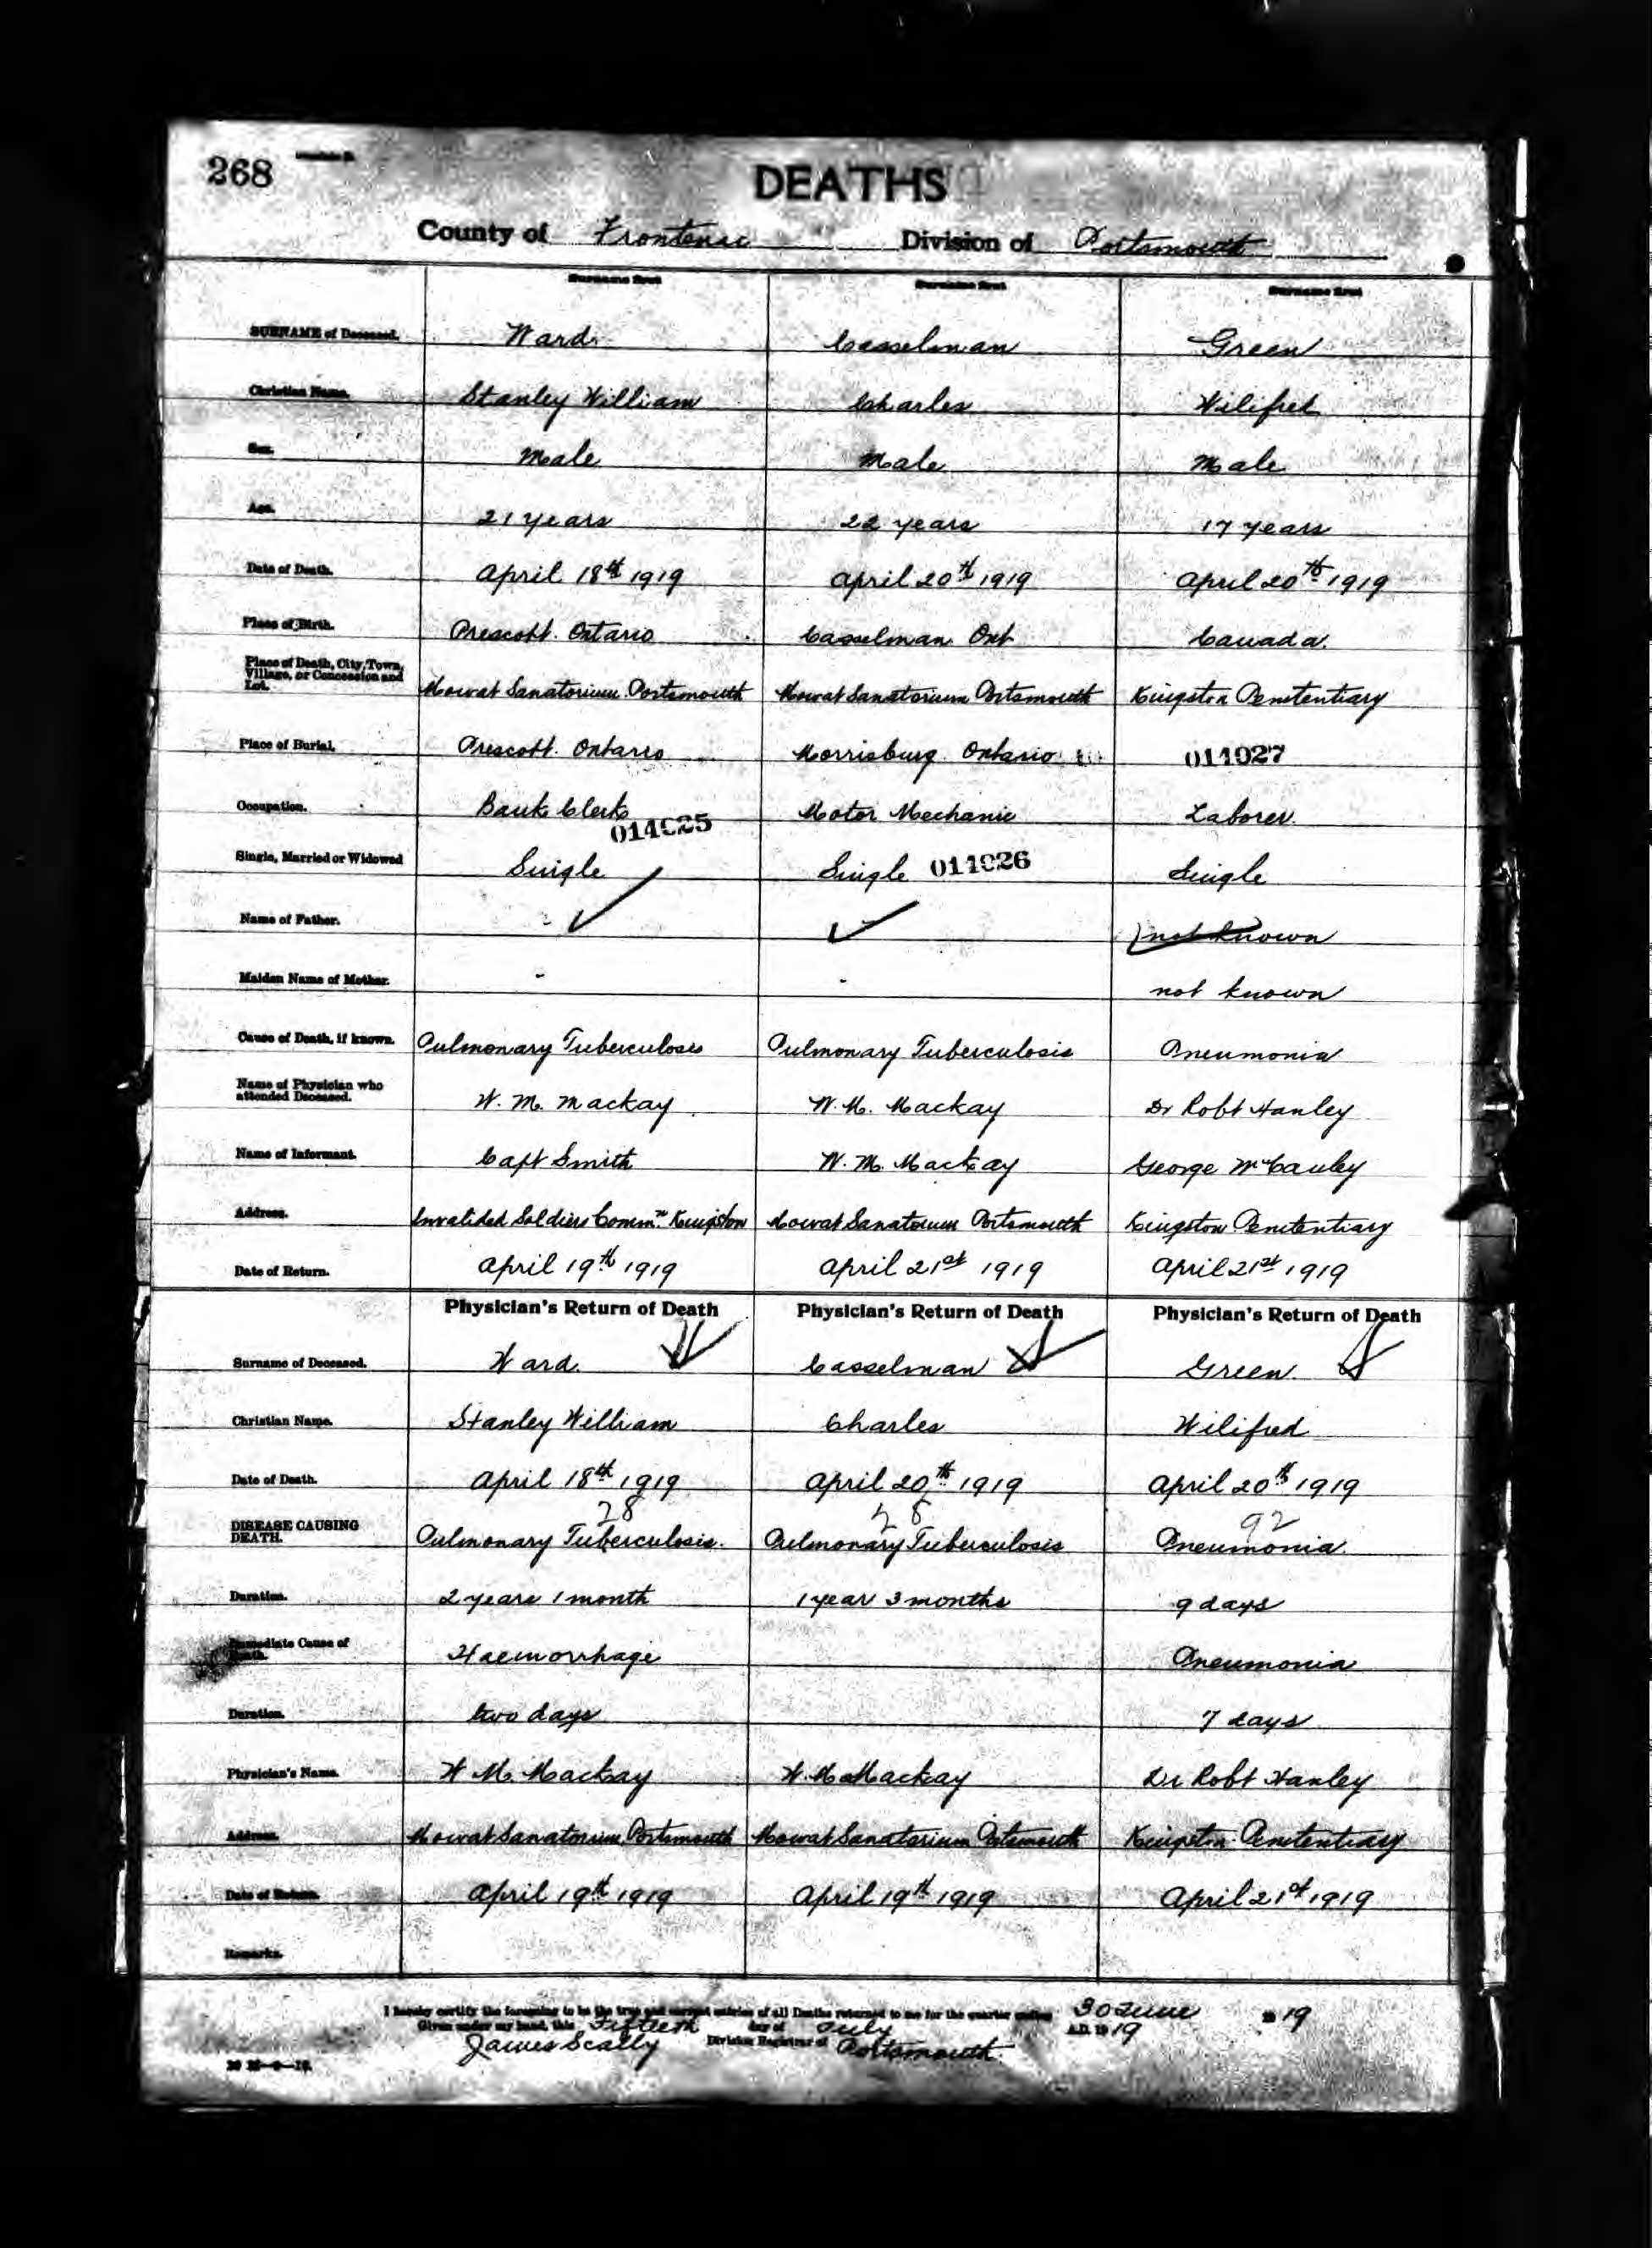 268
DEATHS
County of Frontenac Division of Portsmouth
Surname first Surname first Surname first
SURNAME of Deceased. Ward Casselman Green
Christian Name. Stanley William Charles Wilifred
Sex. Male Male Male
Age. 21 years 22 years 17 years
Date of Death. April 18th 1919 April 20th 1919 April 20th 1919
Place of Birth. Prescott. Ontario Casselman Ont Canada.
Place of Death, City, Town, Village, or Concession and Lot. Mowat Sanatorium Portsmouth Mowat Sanatorium Portsmouth Kingston Penetentiary
Place of Burial. Prescott. Ontario Morrisburg Ontario 014027
Occupation. Bank Clerk Motor Mechanic Laborer.
Single, Married or Widowed Single Single Single
Name of Father. - not known
Maiden Name of Mother. - - not known
Cause of Death, if known. Pulmonary Tuberculosis Pulmonary Tuberculosis Pneumonia
Name of Physician who attended Deceased. W. M. Mackay W. M. Mackay Dr Robt Hanley
Name of Informant. Capt Smith W. M. Mackay George McCauley
Address. Invalided Soldiers Commn Kingston Mowat Sanatorium Portsmouth Kingston Penetentiary
Date of Return. April 19th 1919 April 21st 1919 April 21st 1919
Physician's Return of Death Physician's Return of Death Physician's Return of Death
Surname of Deceased. Ward. Casselman Green.
Christian Name. Stanley William Charles Wilifred
Date of Death. April 18th 1919 April 20th 1919 April 20th 1919
28 28 92
DISEASE CAUSING DEATH. Pulmonary Tuberculosis. Pulmonary Tuberculosis Pneumonia.
Duration. 2 years 1 month 1 year 3 months 9 days
Immediate Cause of Death. Haemorrhage Pneumonia
Duration. two days 7 days
Physician's Name. W M. Mackay W. M. Mackay Dr Robt Hanley
Address. Mowat Sanatorium Portsmouth Mowat Sanatorium Portsmouth Kingston Penetentiary
Date of Return. April 19th 1919 April 19th 1919 April 21st 1919
Remarks.
I hereby certify the foregoing to be the true and correct entries of all Deaths returned to me for the quarter ending 30 June 1919
Given under my hand, this Fifteenth day of July A.D. 1919
James Scally Division Registrar of Portsmouth.